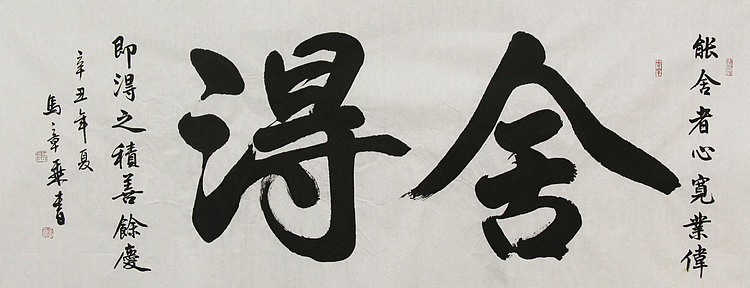 能舍者心寬業偉
舍得
即得之積善餘慶
辛丑年夏
馬章乘書